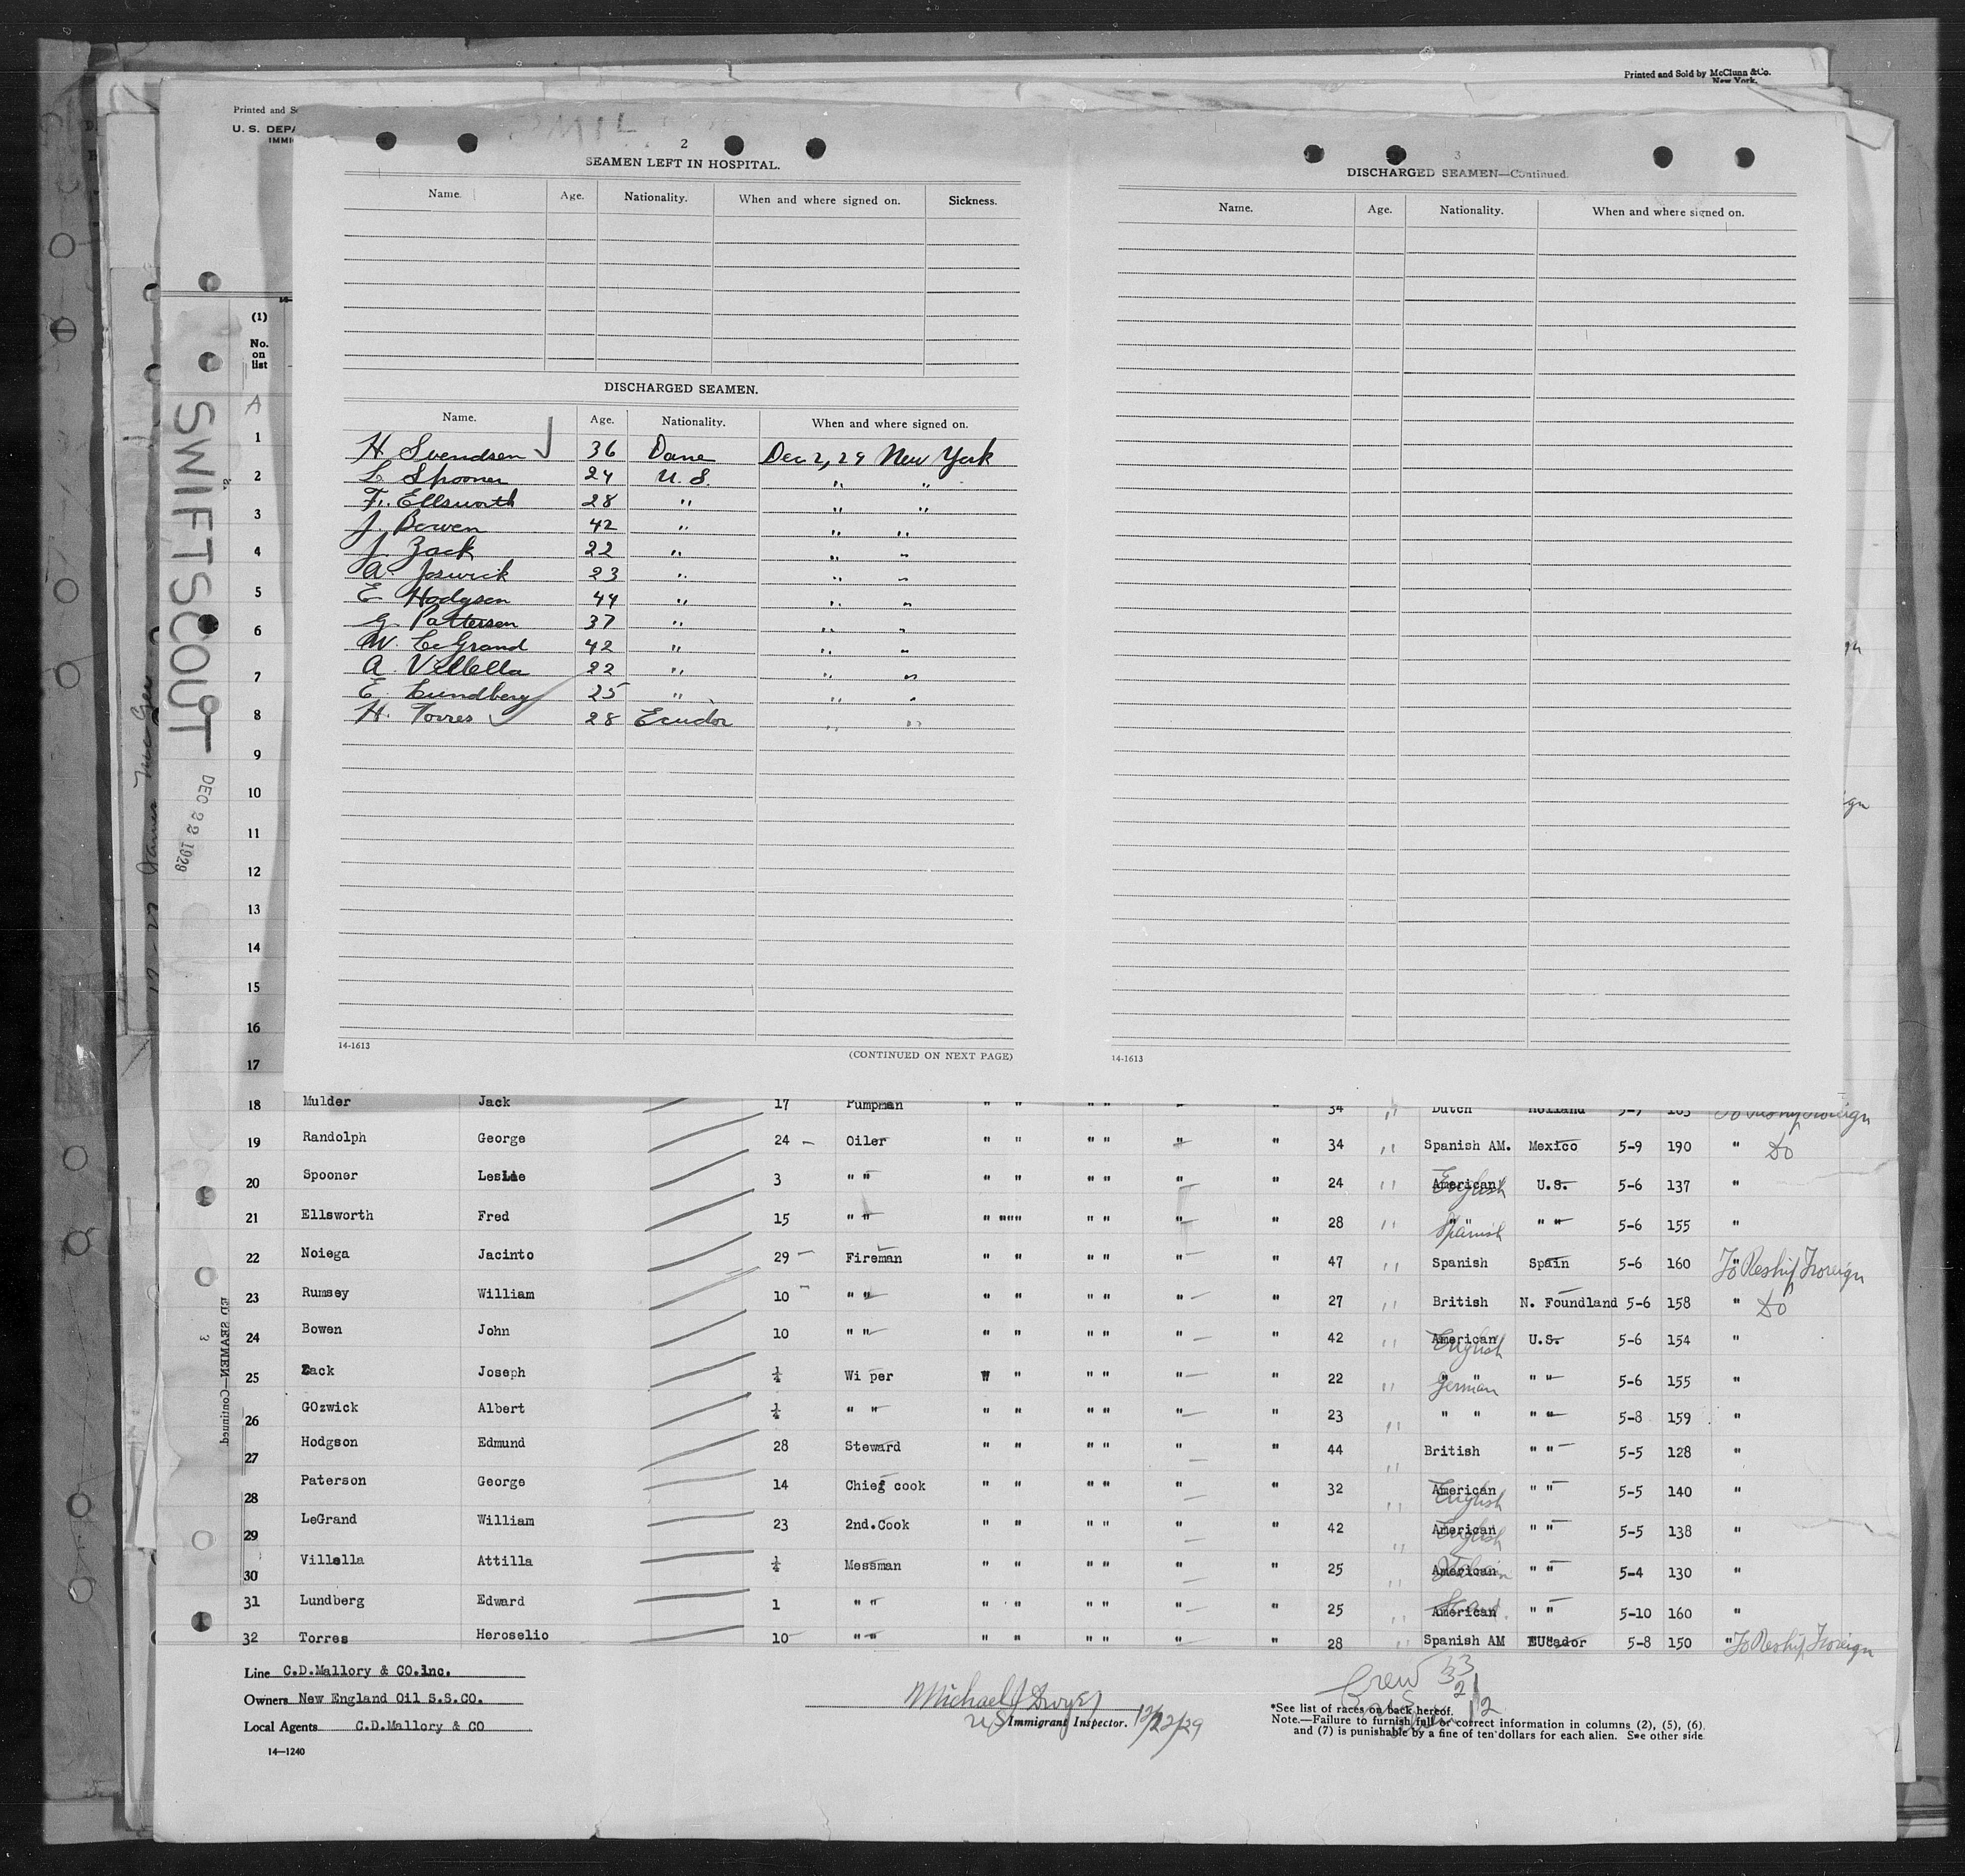 Printed and Sold by McClunn &Co.
New York.
Printed and S
U. S. DEPA
IMMI
2
SEAMEN LEFT IN HOSPITAL.
Name. Age. Nationality. When and where signed on. Sickness.
DISCHARGED SEAMEN.
Name. Age. Nationality. When and where signed on.
H Svendsen 36 Dane Dec 2, 29 New York
L Spooner 24 U.S. " "
F. Ellsworth 28 " " "
J. Bowen 42 " " "
J. Zack 22 " " "
A. 23 " " "
E Hodgson 44 " " "
G. Patterson 37 " " "
W. LeGrand 42 " " "
A. Villella 22 " " "
E. Lundberg 25 " " "
H. Torres 28 Ecudor " "
14-1613
(CONTINUED ON NEXT PAGE)
3
DISCHARGED SEAMEN—Continued.
Name. Age. Nationality. When and where signed on.
14-1613
(1)
No.
on
list
A
1
2
3
4
5
6
7
8
9
10
11
12
13
14
15
16
17
SWIFTSCOUT
DEC 22 1929
ED SEAMEN—Continued
3
18 Mulder Jack 17 Pumpman " " " " " " 34 " Dutch Holland 5-7 163 To Reship Foreign
19 Randolph George 24 Oiler " " " " " " 34 " Spanish AM. Mexico 5-9 190 " Do
20 Spooner Leslie 3 " " " " " " " " 24 " American English U.S. 5-6 137 "
21 Ellsworth Fred 15 " " " """ " " " " 28 " " " Spanish " " 5-6 155 "
22 Noiega Jacinto 29 Fireman " " " " " " 47 " Spanish Spain 5-6 160 " To Reship Foreign
23 Rumsey William 10 " " " " " " " " 27 " British N. Foundland 5-6 158 " Do
24 Bowen John 10 " " " " " " " " 42 " American English U.S. 5-6 154 "
25 Zack Joseph ¼ Wi per W " " " " " 22 " " " German " " 5-6 155 "
26 GOzwick Albert ¼ " " " " " " " " 23 " " " " " 5-8 159 "
27 Hodgson Edmund 28 Steward " " " " " " 44 " British " " 5-5 128 "
28 Paterson George 14 Chief cook " " " " " " 32 " American English " " 5-5 140 "
29 LeGrand William 23 2nd.Cook " " " " " " 42 " American English " " 5-5 138 "
30 Villella Attilla ¼ Messman " " " " " " 25 " American Italian " " 5-4 130 "
31 Lundberg Edward 1 " " " " " " " " 25 " American Scand. " " 5-10 160 "
32 Torres Heroselio 10 " " " " " " " " 28 " Spanish AM EUcador 5-8 150 " To Reship Foreign
Line C.D.Mallory & CO.inc.
Owners New England Oil S.S.CO.
Local Agents C.D.Mallory & CO
14—1240
Michael J Dwyer
US Immigrant Inspector. 12/22/29
Crew 33
21
12
*See list of races on back hereof.
Note.—Failure to furnish full or correct information in columns (2), (5), (6).
and (7) is punishable by a fine of ten dollars for each alien. See other side